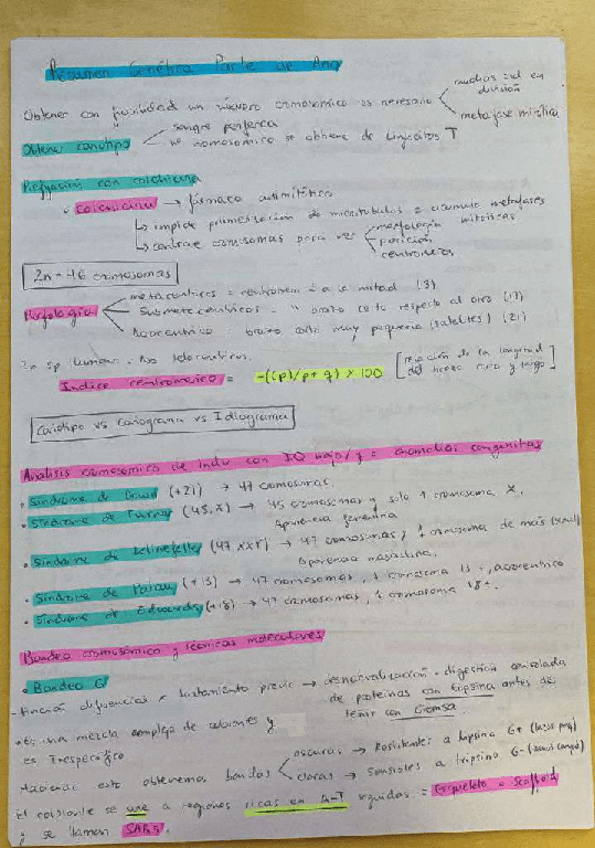 Resumen Genética Parte de Ana
Obtener con facilidad un número cromosómico es necesario
muchas cél en división
metafase mitótica
Obtener cariotipo
sangre periférica
nº cromosómico se obtiene de linfocitos T
Prefijación con colchicina
• Colchicina → fármaco antimitótico
↳ impide polimerización de microtúbulos = acumula metafases mitóticas
↳ contrae cromosomas para ver
morfología
posición
centrómeros
2n = 46 cromosomas
Morfología
metacéntricos = centrómero a la mitad (3)
Submetacéntricos = " brazo corto respecto al otro (17)
Acrocéntrico = brazo corto muy pequeño (satélites) (21)
En sp humana. No telocéntricos.
Indice centromérico = -((p)/p+q) x 100
[relación de la longitud del brazo corto y largo]
Cariotipo vs Cariograma vs Idiograma
Análisis cromosómico de indiv con IQ bajo y/= anomalías congénitas
• Síndrome de Down (+21) → 47 cromosomas.
• Síndrome de Turner (45, x) → 45 cromosomas y solo 1 cromosoma X.
Apariencia femenina
• Síndrome de Kelinefelter (47, xxY) → 47 cromosomas, 1 cromosoma de más (sexual)
Apariencia masculina.
• Síndrome de Patau (+13) → 47 cromosomas, 1 cromosoma 13 +, acrocéntrico
• Síndrome de Edwards (+18) → 47 cromosomas, 1 cromosoma 18+.
Bandeo cromosómico y técnicas moleculares
• Bandeo G
- tinción diferencias x tratamiento previo → desnaturalización + digestión controlada
de proteínas con tripsina antes de
teñir con Giemsa.
• Es una mezcla compleja de colorantes y
es inespecífico
Haciendo esto obtenemos bandas
oscuras → Resistentes a tripsina G+
claras → Sensibles a tripsina G-
El colorante se une a regiones ricas en A-T seguidas = Esqueleto o Scaffold
y se llaman SARs.